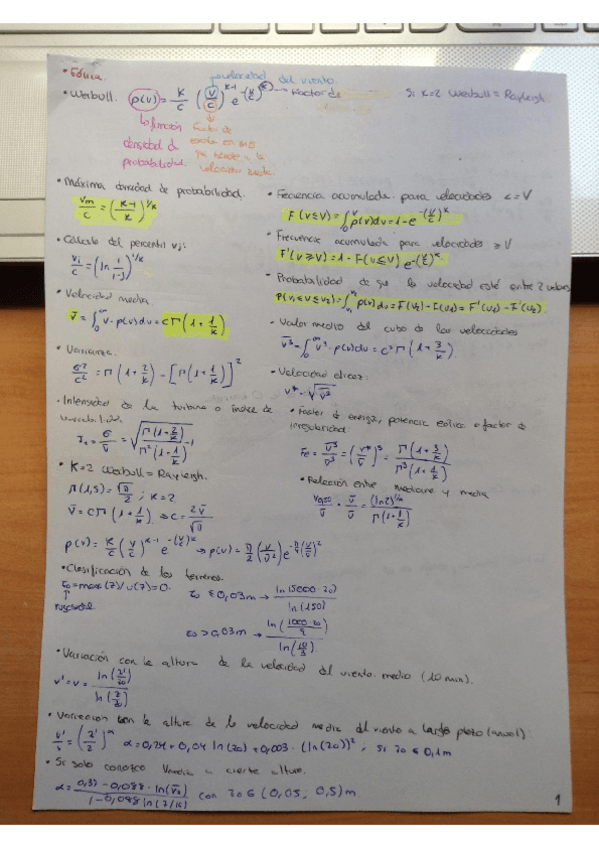 • Eólica.
velocidad del viento.
• Weibull. p(v) = k/c (v/c)^(k-1) e^-(v/c)^k → Factor de
Si K=2 Weibull = Rayleigh.
La función densidad de probabilidad.
Factor de escala en m/s
velocidad media.
• Máxima densidad de probabilidad.
vm/c = ((k-1)/k)^(1/k)
• Cálculo del percentil vj:
vj/c = (ln 1/(1-j))^(1/k)
• Velocidad media
v̄ = ∫₀^∞ v · p(v)dv = c Γ(1 + 1/k)
• Varianza.
σ²/c² = Γ(1 + 2/k) - [Γ(1 + 1/k)]²
• Intensidad de la turbulencia o índice de
variabilidad.
= σ/v̄ = √(Γ(1 + 2/k)/Γ²(1 + 1/k) - 1)
• K=2 Weibull = Rayleigh.
Γ(1,5) = √π/2 ; k=2
v̄ = c Γ(1 + 1/k) ⇒ c = 2v̄/√π
p(v) = k/c (v/c)^(k-1) e^-(v/c)^k → p(v) = π/2 (v/v̄²) e^-π/4 (v/v̄)²
• Frecuencia acumulada para velocidades <= V
F(v≤V) = ∫₀^V p(v)dv = 1 - e^-(v/c)^k
• Frecuencia acumulada para velocidades ≥ V
F'(v≥V) = 1 - F(v≤V) e^-(v/c)^k
• Probabilidad de que la velocidad esté entre 2 valores
P(v₁≤v≤v₂) = ∫ p(v)dv = F(v₂) - F(v₁) = F'(v₁) - F'(v₂)
• Valor medio del cubo de las velocidades
v̄³ = ∫₀^∞ v³ · p(v)dv = c³ Γ(1 + 3/k)
• Velocidad eficaz:
• Factor de energía, potencia eólica o factor de
irregularidad.
Fe = v̄³/v̄³ = (v*/v̄)³ = Γ(1 + 3/k)/Γ³(1 + 1/k)
• Relación entre mediana y media
= (ln2)^(1/k)/Γ(1 + 1/k)
• Clasificación de los terrenos.
rugosidad
z₀ ≤ 0,03m → ln(5000·z₀)/ln(150)
z₀ > 0,03m → ln(1000·z₀/9)/ln(10/3)
• Variación con la altura de la velocidad del viento medio (10 min).
v' = v · ln(z'/z₀)/ln(z/z₀)
• Variación con la altura de la velocidad media del viento a largo plazo (anual).
v'/v = (z'/z)^α α = 0,24 + 0,04 ln(z₀) + 0,003 · (ln(z₀))² ; si z₀ ≤ 0,1m
• Si solo conozco Vmedia a cierta altura.
α = (0,37 - 0,088 · ln(v̄))/(1 - 0,088 ln(z/10)) con z₀ ∈ (0,05, 0,5)m
1